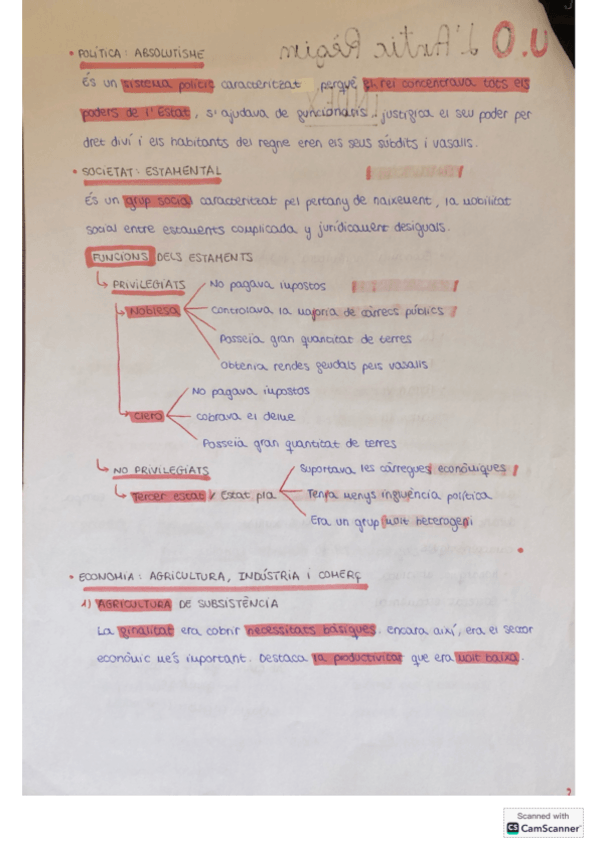 U.0 L'Antic Règim
• POLÍTICA: ABSOLUTISME
És un sistema polític caracteritzat perquè el rei concentrava tots els
poders de l'Estat, s'ajudava de funcionaris. justifica el seu poder per
dret diví i els habitants del regne eren els seus súbdits i vasalls.
INDEX
• SOCIETAT: ESTAMENTAL
És un grup social caracteritzat pel pertany de naixement, la mobilitat
social entre estaments complicada y jurídicament desiguals.
FUNCIONS DELS ESTAMENTS
↳ PRIVILEGIATS
No pagava impostos
→ Noblesa
Controlava la majoria de càrrecs públics
Posseïa gran quantitat de terres
Obtenia rendes feudals pels vasalls
→ Clero
No pagava impostos
cobrava el delme
Posseïa gran quantitat de terres
↳ NO PRIVILEGIATS
Suportava les càrregues econòmiques
↳ Tercer estat / Estat pla
Tenia menys influència política
Era un grup molt heterogeni
• ECONOMIA: AGRICULTURA, INDÚSTRIA i COMERÇ
1) AGRICULTURA DE SUBSISTÈNCIA
La finalitat era cobrir necessitats bàsiques. encara així, era el sector
econòmic més important. Destaca la productivitat que era molt baixa.
Scanned with
CS CamScanner